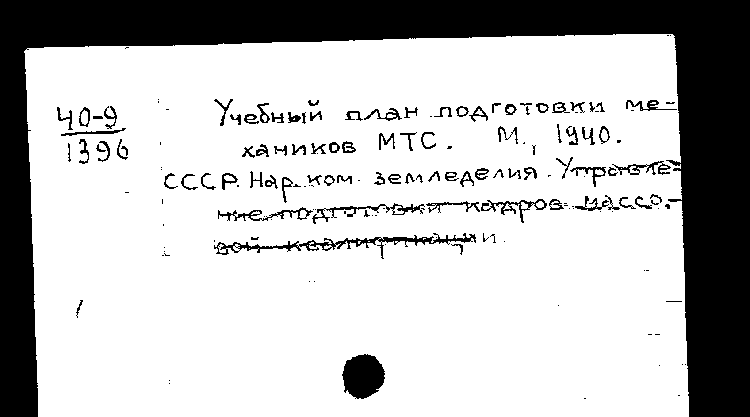 40-9
1396
Учебный план подготовки ме-
хаников МТС. М., 1940.
СССР. Нар. ком. земледелия. Управле-
ние подготовки кадров массо-
вой квалификации.